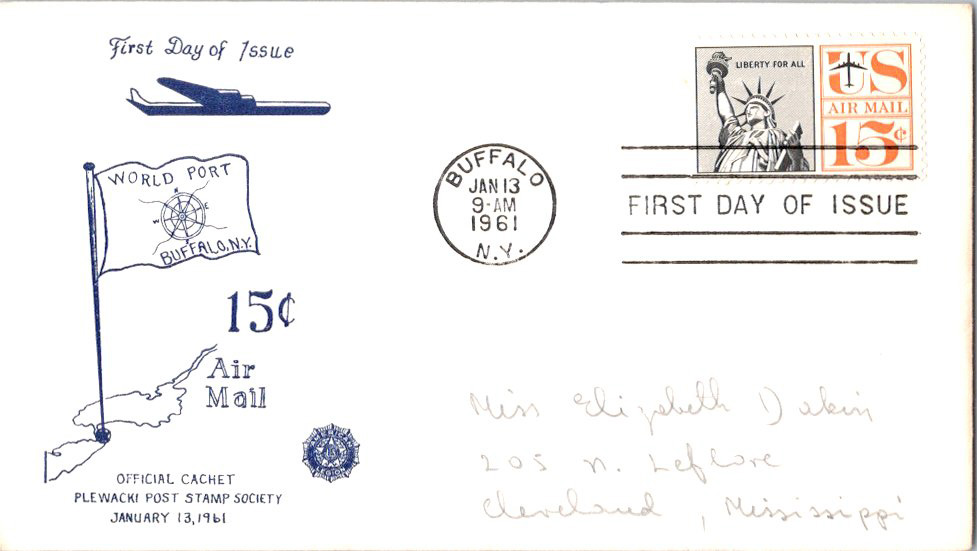 First Day of Issue
WORLD PORT
N
E
W
S
BUFFALO, N.Y.
15¢
Air
Mail
OFFICIAL CACHET
PLEWACKI POST STAMP SOCIETY
JANUARY 13, 1961
BUFFALO
JAN 13
9-AM
1961
N.Y.
LIBERTY FOR ALL
US
AIR MAIL
15¢
FIRST DAY OF ISSUE
Miss Elizabeth Dakin
205 N. Leflore
Cleveland, Mississippi